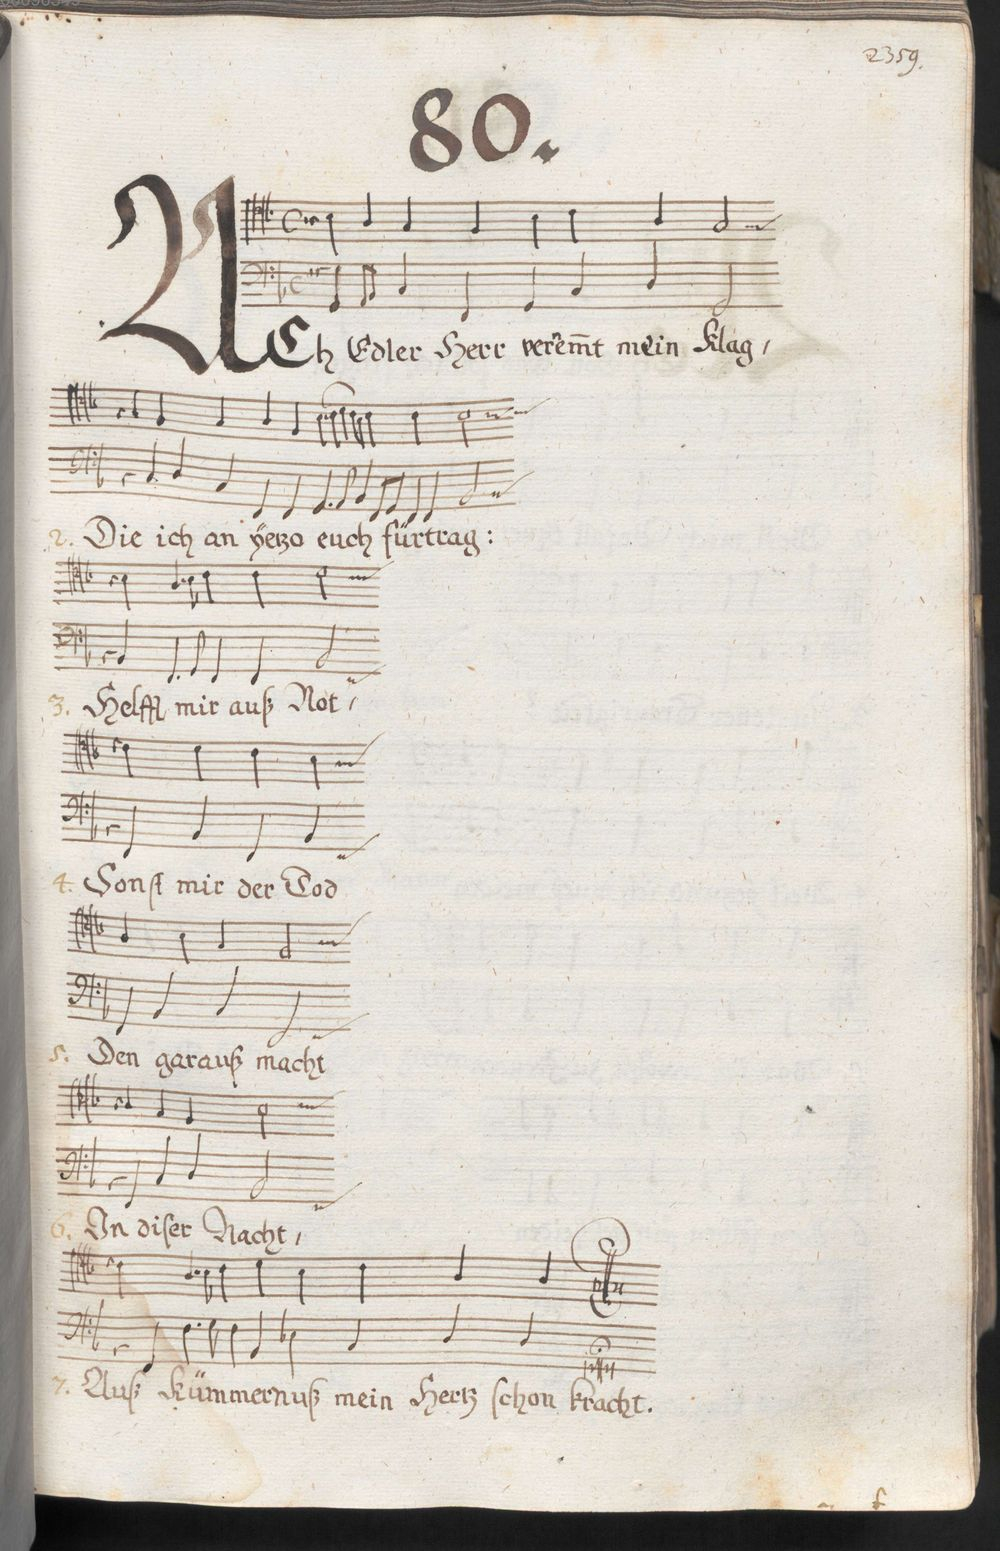 2359.
80.
ACh Edler Herr verem̄t mein Klag/
2. Die ich an ÿetzo euch fürtrag:
3. Helfft mir auß Not/
4. Sonst mir der Tod
5. Den garauß macht
6. In diser Nacht/
7. Auß Kümmernuß mein Hertz schon kracht.